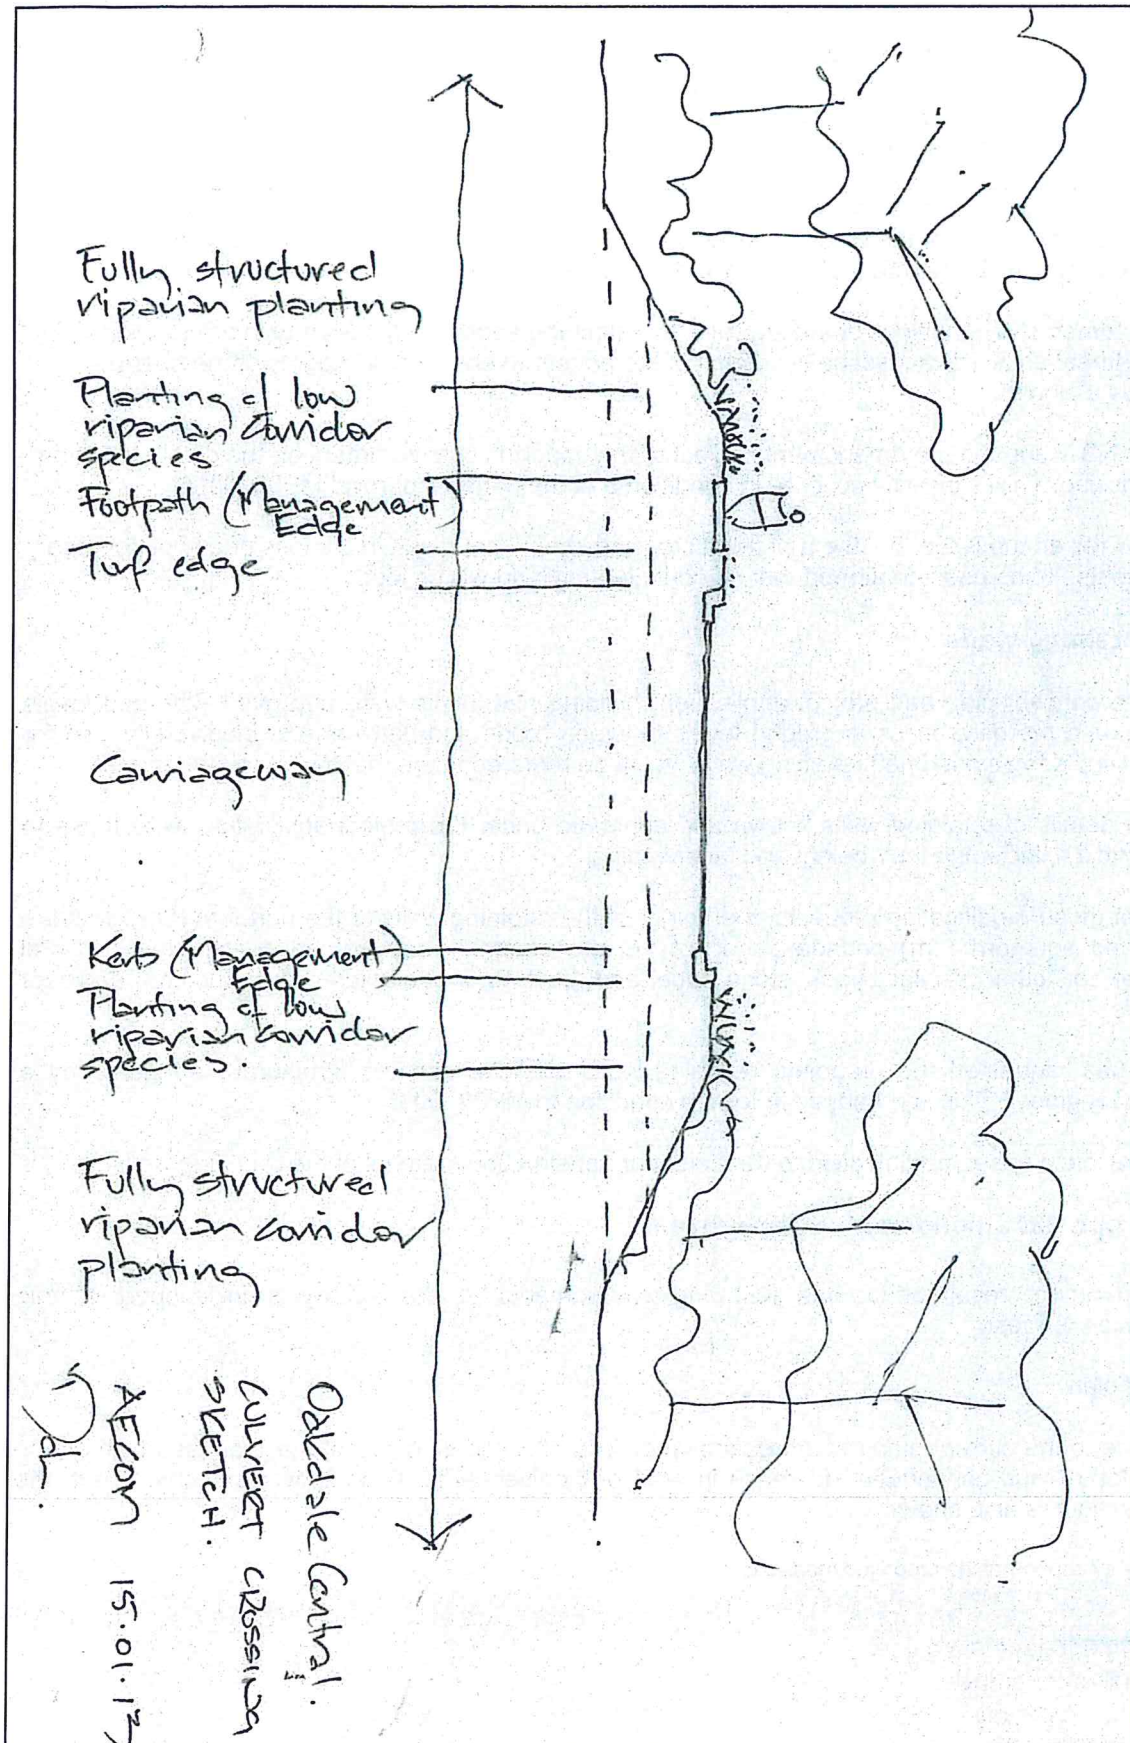 Fully structured
riparian planting
Planting of low
riparian corridor
species
Footpath (Management
Edge)
Turf edge
Carriageway
Kerb (Management
Edge)
Planting of low
riparian corridor
species.
Fully structured
riparian corridor
planting
Oakdale Central.
CULVERT CROSSING
SKETCH.
AECOM